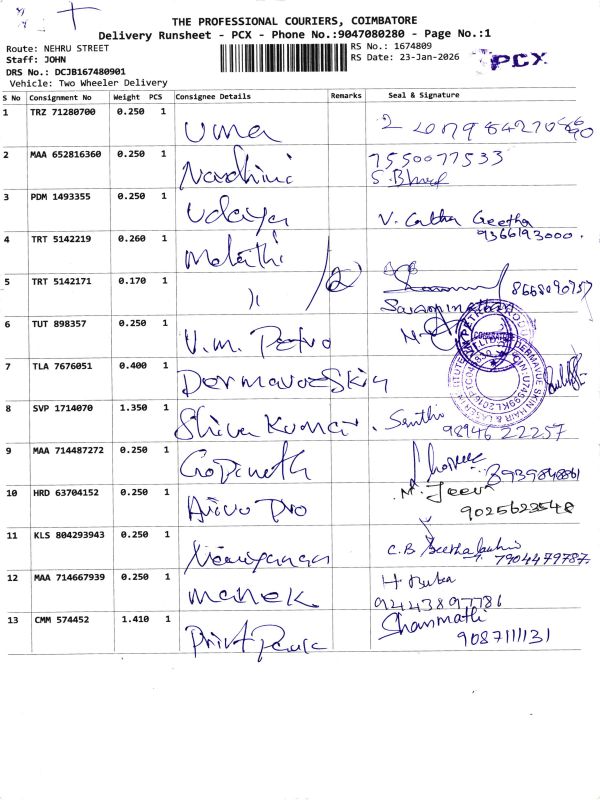 THE PROFESSIONAL COURIERS, COIMBATORE
Delivery Runsheet - PCX - Phone No.:9047080280 - Page No.:1
Route: NEHRU STREET
Staff: JOHN
DRS No.: DCJB167480901
Vehicle: Two Wheeler Delivery
RS No.: 1674809
RS Date: 23-Jan-2026
PCX
S No Consignment No Weight PCS Consignee Details Remarks Seal & Signature
1 TRZ 71280700 0.250 1 Uma
2 MAA 652816360 0.250 1 Nandhini 7550077533
3 PDM 1493355 0.250 1 Udaya V. Geetha
9366193000.
4 TRT 5142219 0.260 1 Malathi
5 TRT 5142171 0.170 1 )(
6 TUT 898357 0.250 1 V.m. Petro
7 TLA 7676051 0.400 1 DermavueSkin
8 SVP 1714070 1.350 1 Shiva Kumar. Senthi
98946 22257
9 MAA 714487272 0.250 1 Gopinath
10 HRD 63704152 0.250 1 Arivu Pro M. Jeeva
9025623548
11 KLS 804293943 0.250 1 C.B
7904479787.
12 MAA 714667939 0.250 1 manek H
9443897786
13 CMM 574452 1.410 1 Shanmathi
9087111131